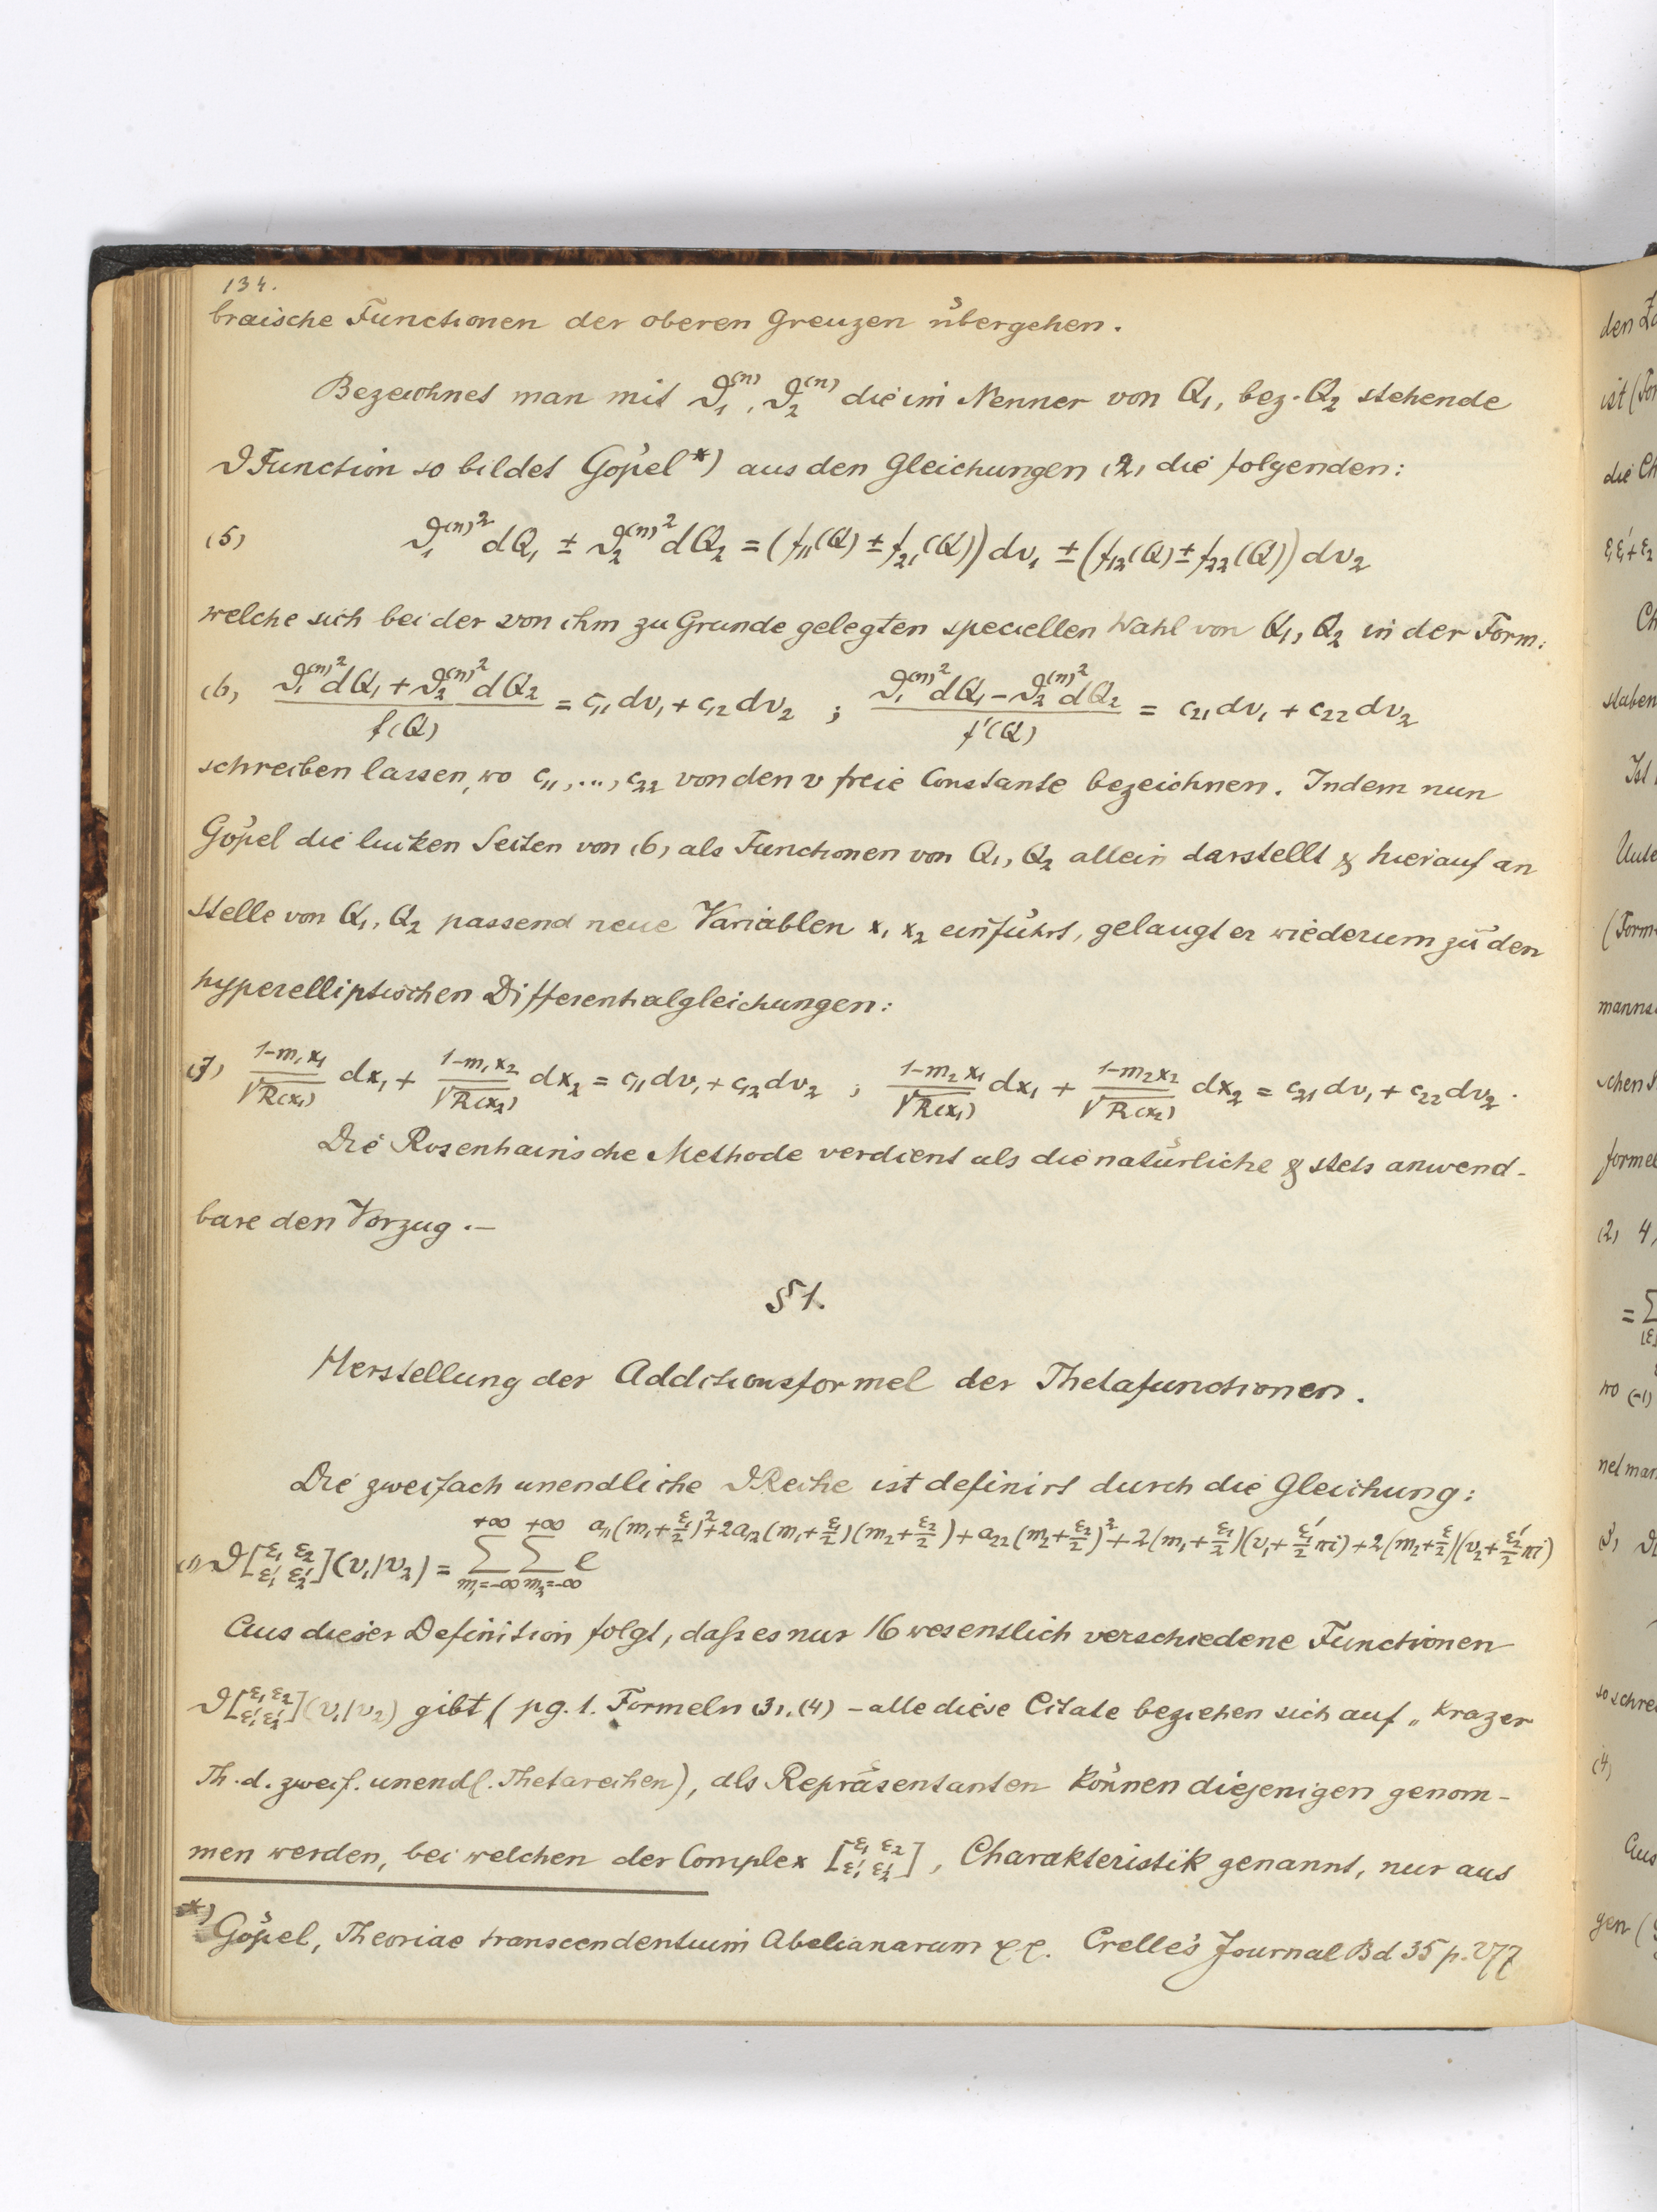 134.
braische Functionen der oberen Grenzen übergehen.
Bezeichnet man mit ϑ₁⁽ⁿ⁾, ϑ₂⁽ⁿ⁾ die im Nenner von Q₁, bez. Q₂ stehende
ϑFunction so bildet Göpel*) aus den Gleichungen (2) die folgenden:
(5) ϑ₁⁽ⁿ⁾² dQ₁ ± ϑ₂⁽ⁿ⁾² dQ₂ = (f₁₁(Q) ± f₂₁(Q)) dv₁ ± (f₁₂(Q) ± f₂₂(Q)) dv₂
welche sich bei der von ihm zu Grunde gelegten speciellen Wahl von Q₁, Q₂ in der Form:
(6) (ϑ₁⁽ⁿ⁾² dQ₁ + ϑ₂⁽ⁿ⁾² dQ₂)/f(Q) = c₁₁ dv₁ + c₁₂ dv₂ ; (ϑ₁⁽ⁿ⁾² dQ₁ − ϑ₂⁽ⁿ⁾² dQ₂)/f'(Q) = c₂₁ dv₁ + c₂₂ dv₂
schreiben lassen, wo c₁₁, ..., c₂₂ von den v freie Constante bezeichnen. Indem nun
Göpel die linken Seiten von (6) als Functionen von Q₁, Q₂ allein darstellt & hierauf an
stelle von Q₁, Q₂ passend neue Variablen x₁ x₂ einführt, gelangt er wiederum zu den
hyperelliptischen Differentialgleichungen:
(7) (1−m₁x₁)/√R(x₁) dx₁ + (1−m₁x₂)/√R(x₂) dx₂ = c₁₁ dv₁ + c₁₂ dv₂ ; (1−m₂x₁)/√R(x₁) dx₁ + (1−m₂x₂)/√R(x₂) dx₂ = c₂₁ dv₁ + c₂₂ dv₂.
Die Rosenhainische Methode verdient als die natürliche & stets anwend-
bare den Vorzug.—
§ 1.
Herstellung der Additionsformel der Thetafunctionen.
Die zweifach unendliche ϑReihe ist definirt durch die Gleichung:
(1) ϑ[ε₁ ε₂ / ε₁' ε₂'](v₁/v₂) = Σ_{m₁=−∞}^{+∞} Σ_{m₂=−∞}^{+∞} e^{a₁₁(m₁+ε₁/2)²+2a₁₂(m₁+ε₁/2)(m₂+ε₂/2)+a₂₂(m₂+ε₂/2)²+2(m₁+ε₁/2)(v₁+ε₁'/2 πi)+2(m₂+ε/2)(v₂+ε₂'/2 πi)}
Aus dieser Definition folgt, daſs es nur 16 wesentlich verschiedene Functionen
ϑ[ε₁ ε₂ / ε₁' ε₂'](v₁/v₂) gibt (pg. 1. Formeln (3), (4) – alle diese Citate beziehen sich auf „Krazer
Th. d. zweif. unendl. Thetareihen), als Repräsentanten können diejenigen genom-
men werden, bei welchen der Complex [ε₁ ε₂ / ε₁' ε₂'], Charakteristik genannt, nur aus
*) Göpel, Theoriae transcendentuim Abelianarum Crelle's Journal Bd 35 p. 277